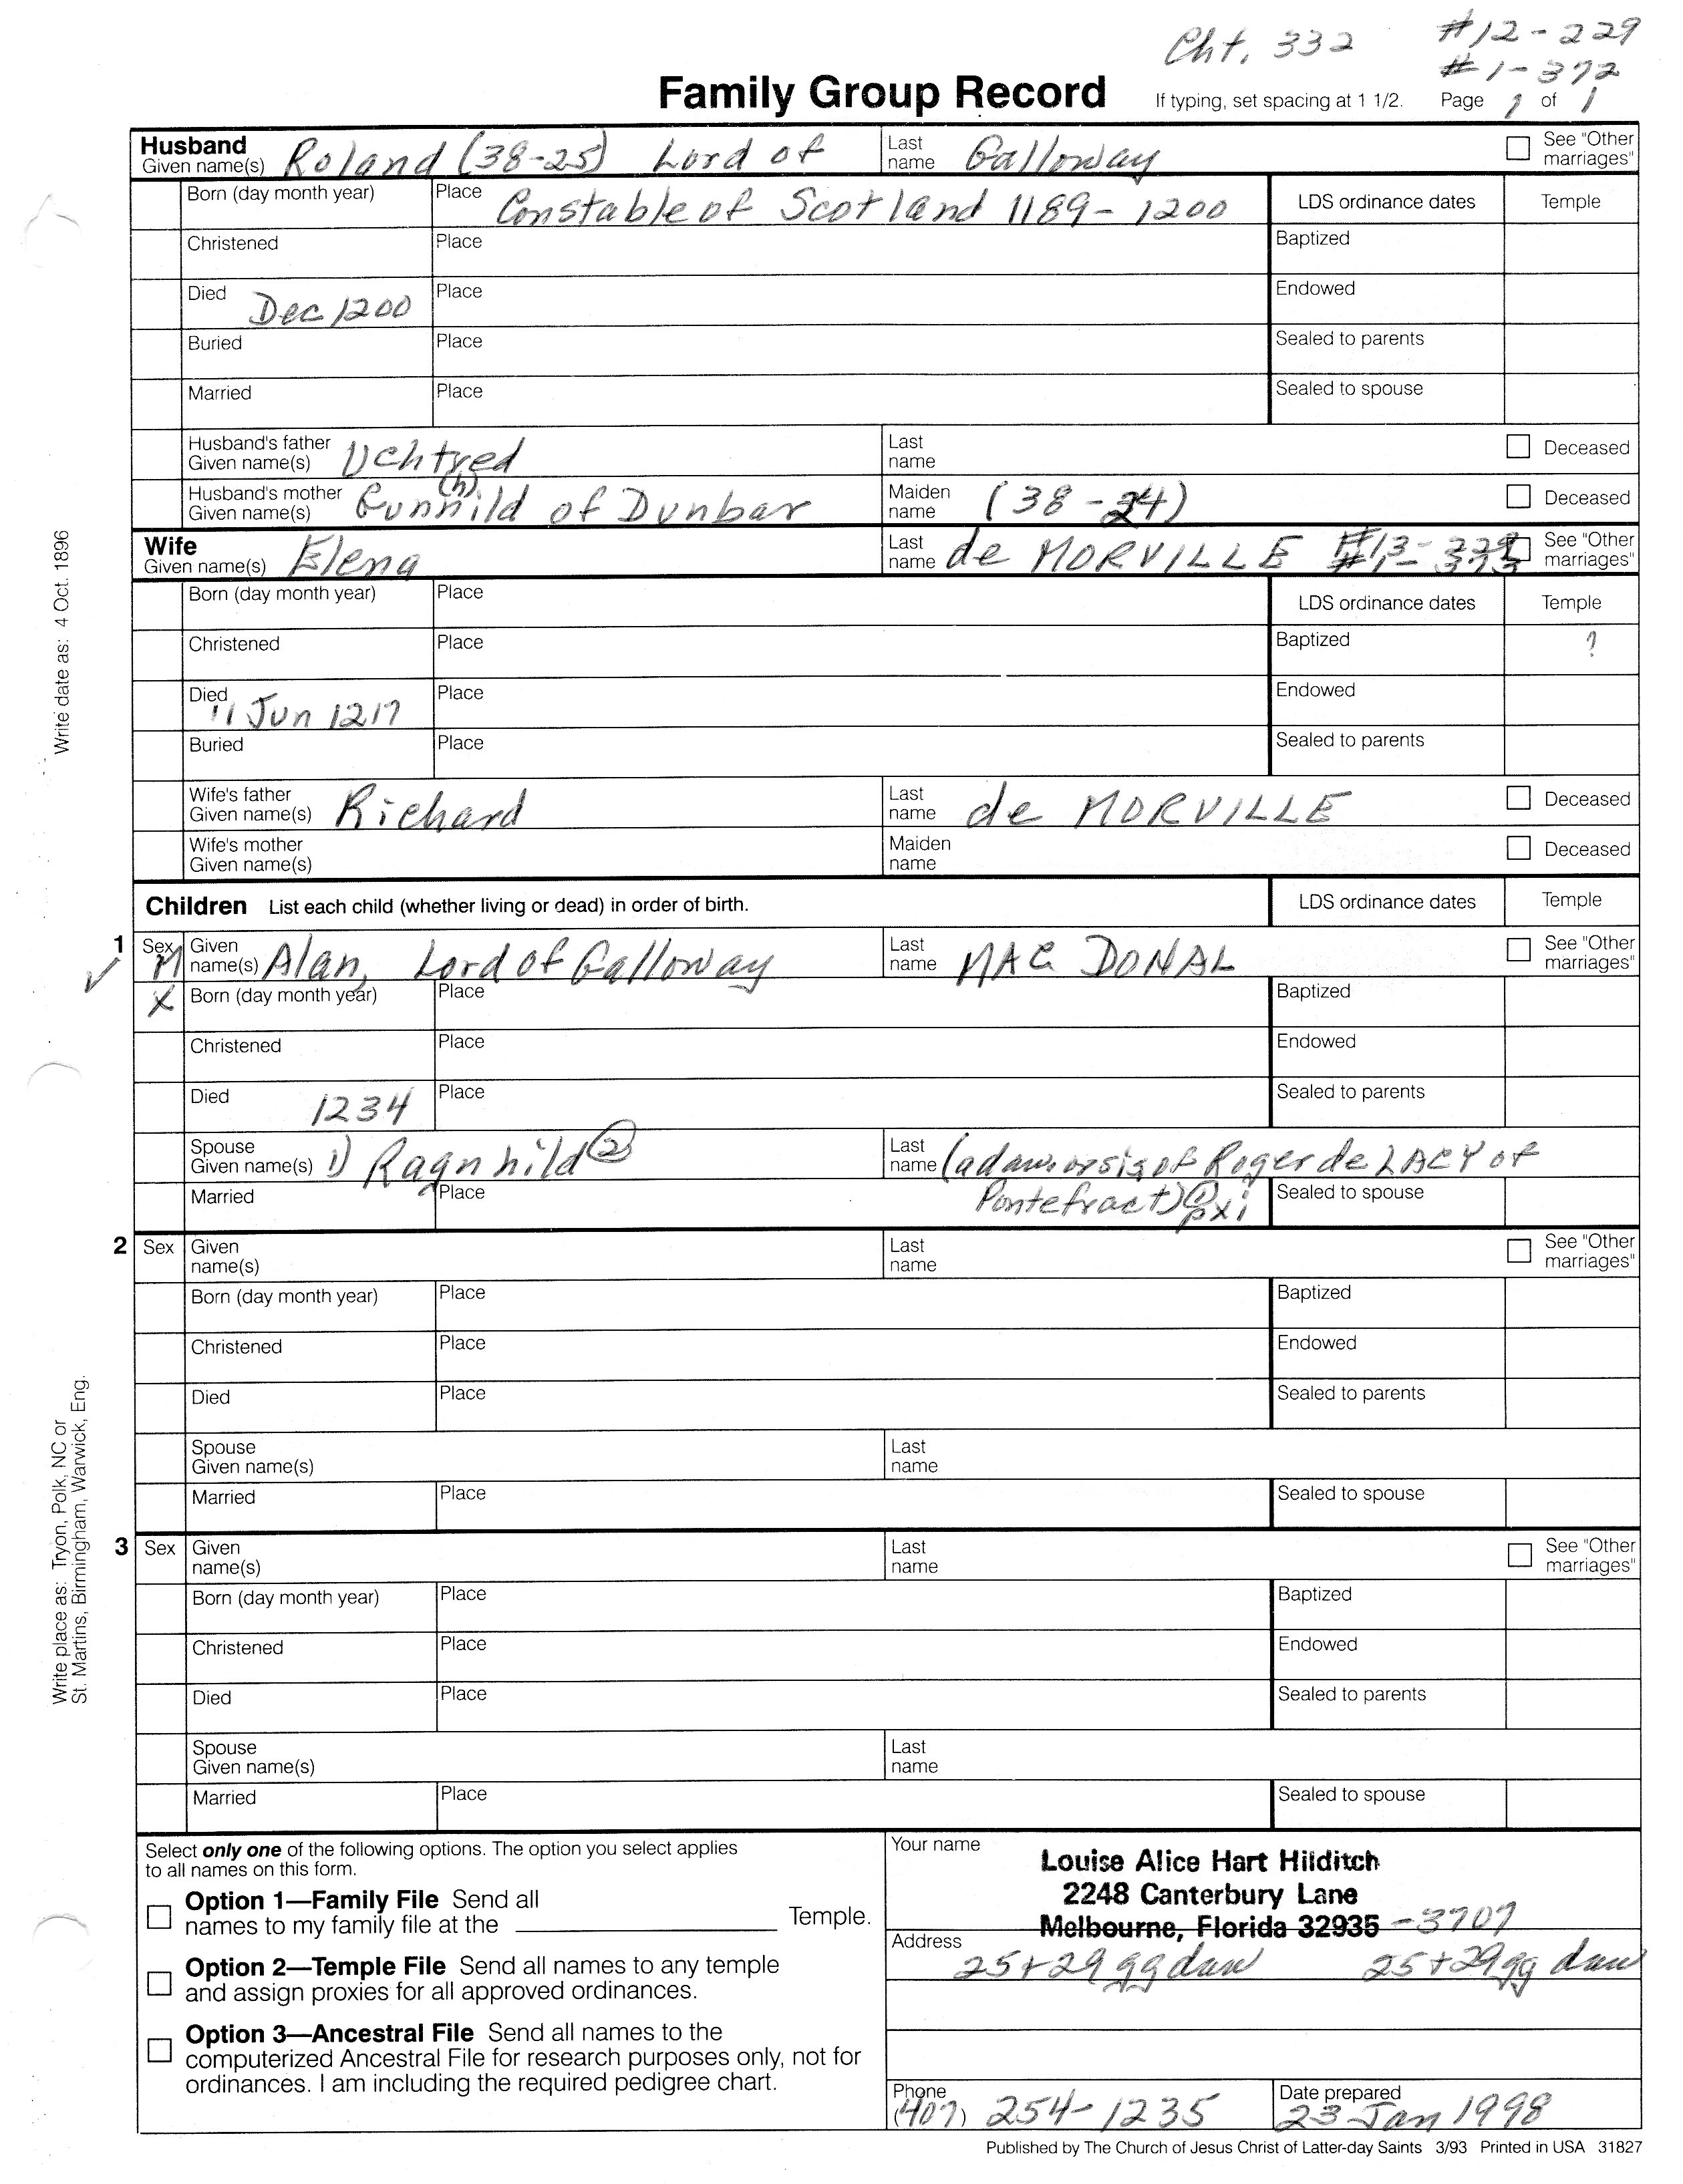 Cht. 332 #12-229
#1-372
Family Group Record If typing, set spacing at 1 1/2. Page 1 of 1
Husband
Given name(s) Roland (38-25) Lord of Last name Galloway See "Other marriages"
Born (day month year) Place Constable of Scotland 1189-1200 LDS ordinance dates Temple
Christened Place Baptized
Died Dec 1200 Place Endowed
Buried Place Sealed to parents
Married Place Sealed to spouse
Husband's father Given name(s) Uchtred Last name Deceased
Husband's mother Given name(s) Gunn(h)ild of Dunbar Maiden name (38-24) Deceased
Wife
Given name(s) Elena Last name de MORVILLE #13- #1-373 See "Other marriages"
Born (day month year) Place LDS ordinance dates Temple
Christened Place Baptized ?
Died 11 Jun 1217 Place Endowed
Buried Place Sealed to parents
Wife's father Given name(s) Richard Last name de MORVILLE Deceased
Wife's mother Given name(s) Maiden name Deceased
Children List each child (whether living or dead) in order of birth. LDS ordinance dates Temple
1 Sex M Given name(s) Alan, Lord of Galloway Last name MAC DONAL See "Other marriages"
X Born (day month year) Place Baptized
Christened Place Endowed
Died 1234 Place Sealed to parents
Spouse Given name(s) 1) Ragnhild (2) Last name (a daw. or sis of Roger de LACY of
Married Place Pontefract) (1) pxi Sealed to spouse
2 Sex Given name(s) Last name See "Other marriages"
Born (day month year) Place Baptized
Christened Place Endowed
Died Place Sealed to parents
Spouse Given name(s) Last name
Married Place Sealed to spouse
3 Sex Given name(s) Last name See "Other marriages"
Born (day month year) Place Baptized
Christened Place Endowed
Died Place Sealed to parents
Spouse Given name(s) Last name
Married Place Sealed to spouse
Select only one of the following options. The option you select applies
to all names on this form.
Option 1—Family File Send all
names to my family file at the Temple.
Option 2—Temple File Send all names to any temple
and assign proxies for all approved ordinances.
Option 3—Ancestral File Send all names to the
computerized Ancestral File for research purposes only, not for
ordinances. I am including the required pedigree chart.
Your name Louise Alice Hart Hilditch
2248 Canterbury Lane
Melbourne, Florida 32935 -3707
Address 25+29 gg daw 25+29 gg daw
Phone (407) 254-1235 Date prepared 23 Jan 1998
Published by The Church of Jesus Christ of Latter-day Saints 3/93 Printed in USA 31827
Write date as: 4 Oct. 1896
Write place as: Tryon, Polk, NC or
St. Martins, Birmingham, Warwick, Eng.